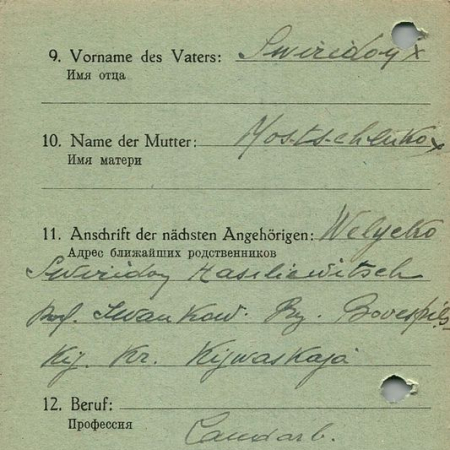 9. Vorname des Vaters: Swiridoy x
Имя отца
10. Name der Mutter: Mostschenko x
Имя матери
11. Anschrift der nächsten Angehörigen: Welycko
Адрес ближайших родственников
Swiridoy Wasiliewitsch
Dorf. Iwankow. Ry. Borespils
Kij. Kr. Kijwaskaja
12. Beruf:
Профессия
Landarb.